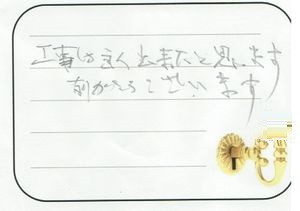 工事は良く出来たと思います
有がとうございます